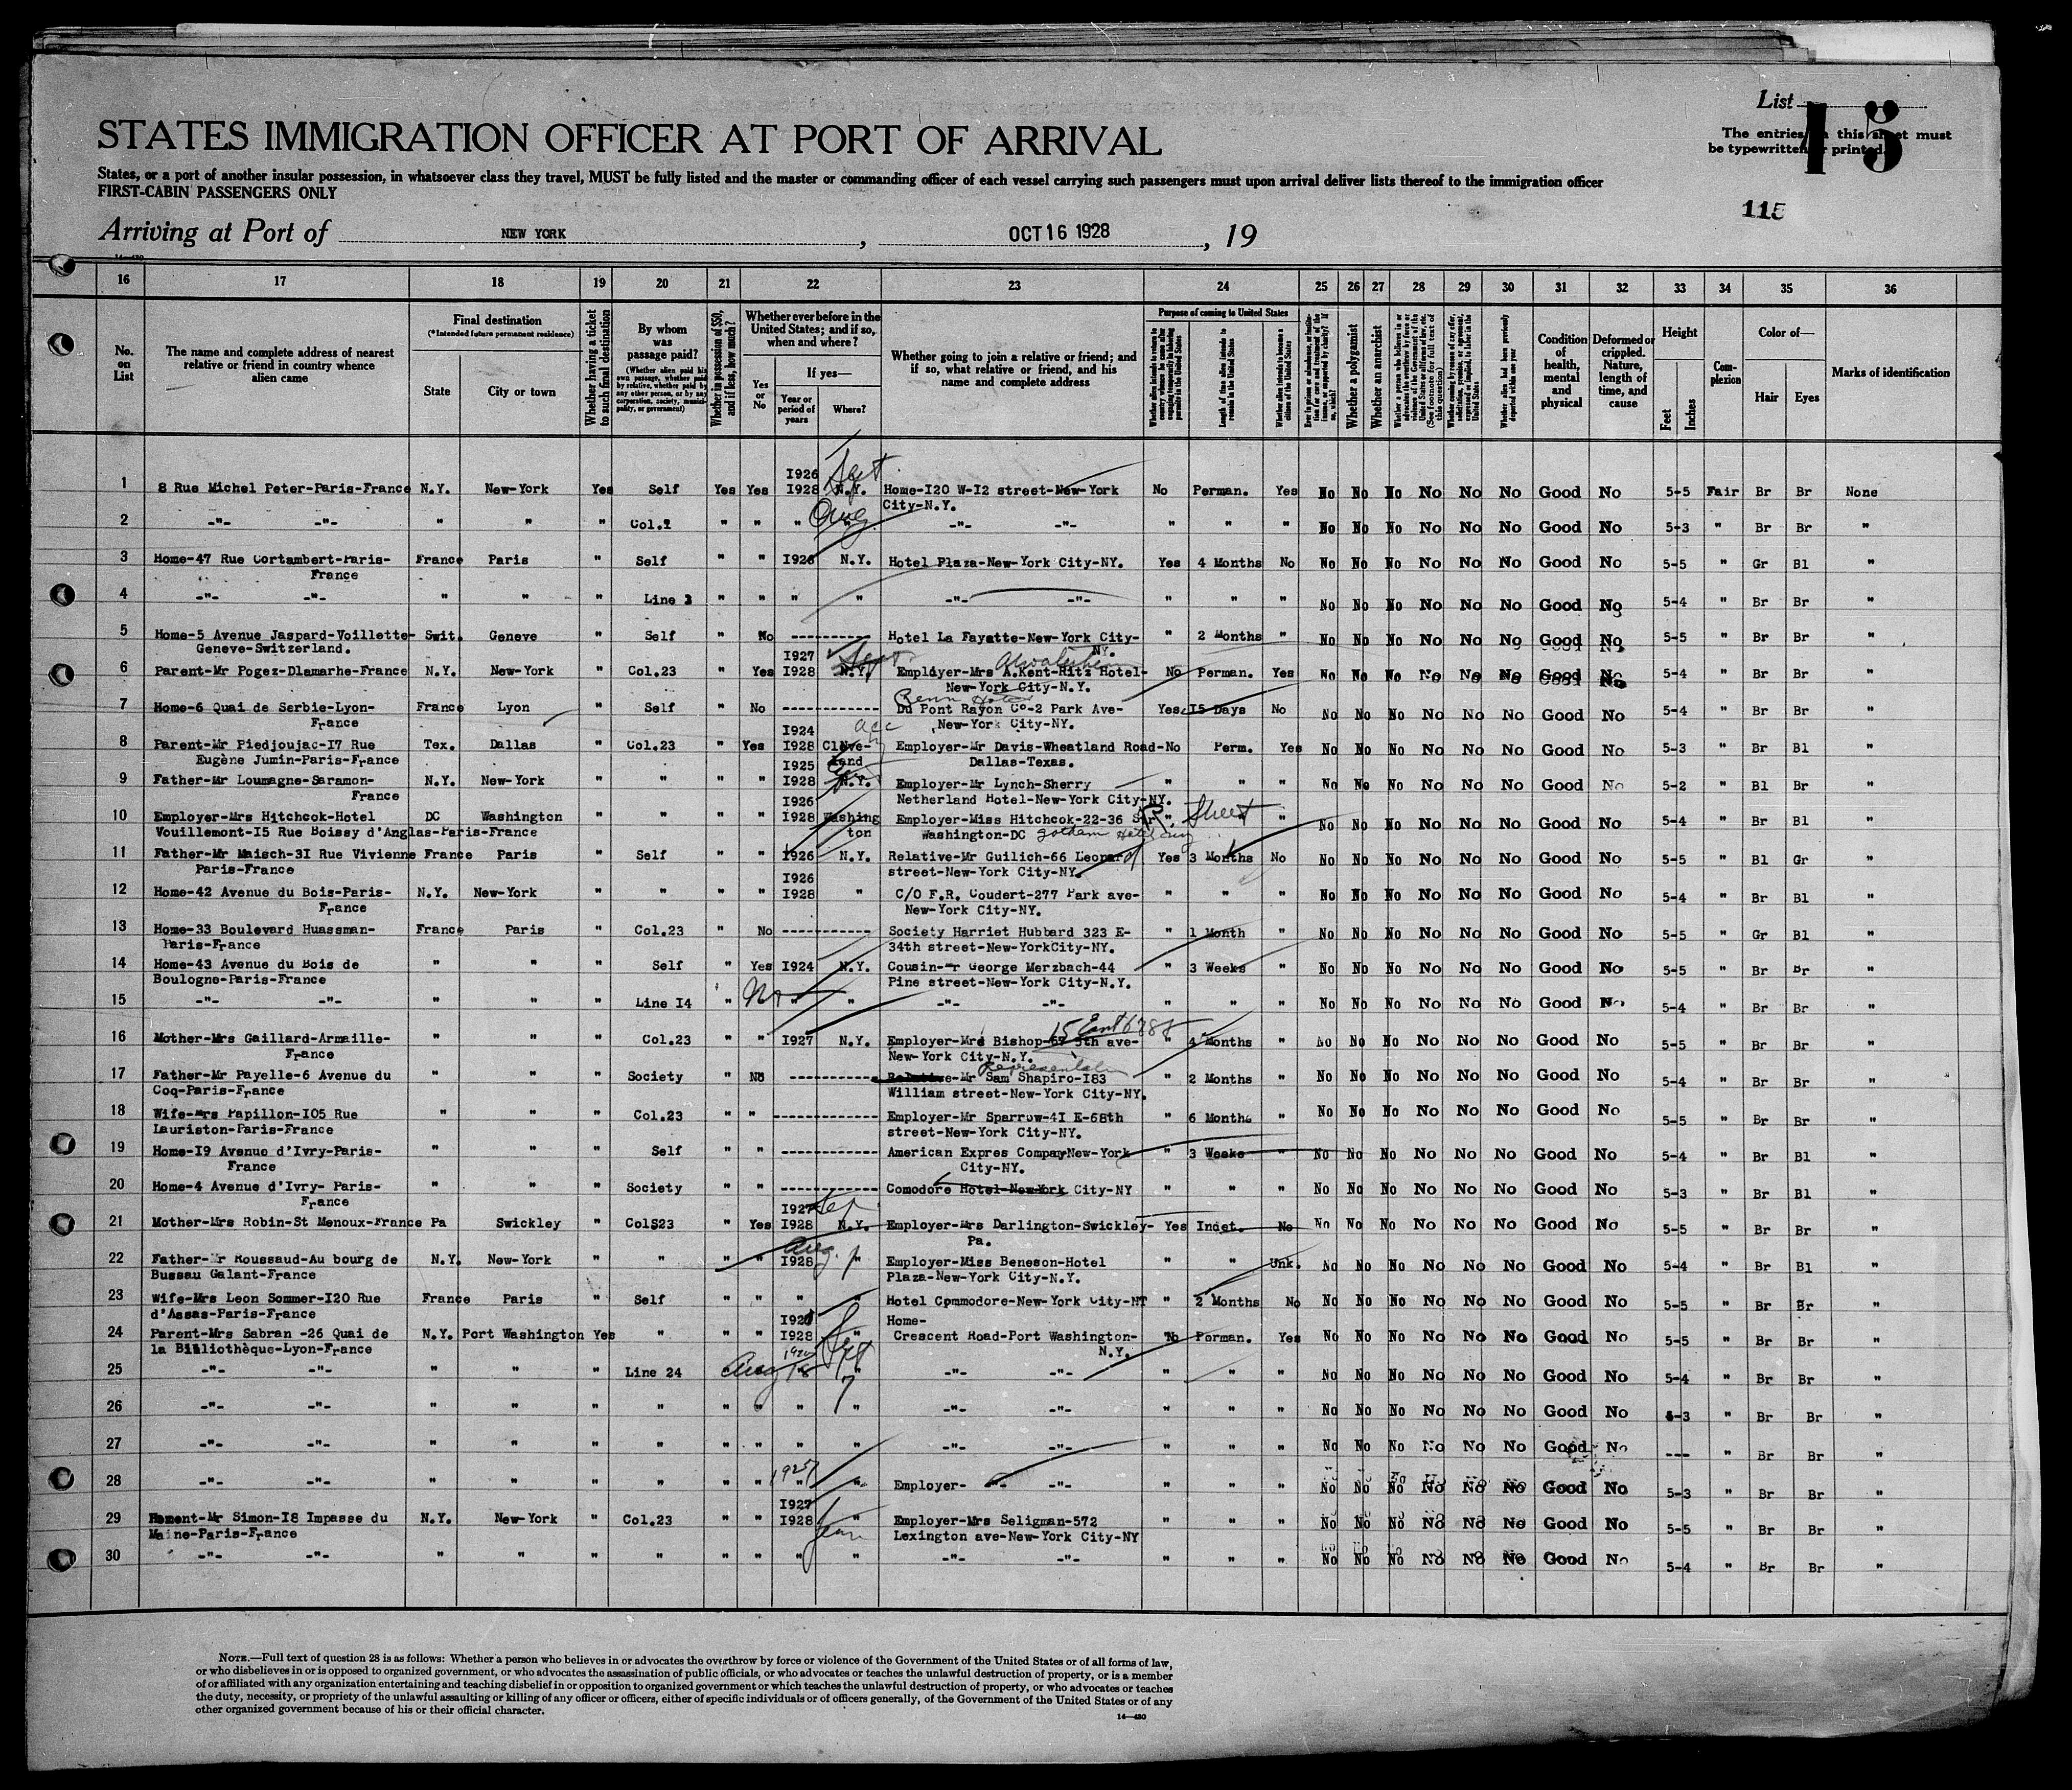 List
15
The entries on this sheet must
be typewritten or printed.
STATES IMMIGRATION OFFICER AT PORT OF ARRIVAL
States, or a port of another insular possession, in whatsoever class they travel, MUST be fully listed and the master or commanding officer of each vessel carrying such passengers must upon arrival deliver lists thereof to the immigration officer
FIRST-CABIN PASSENGERS ONLY
115
Arriving at Port of NEW YORK, OCT 16 1928, 19
16 17 18 19 20 21 22 23 24 25 26 27 28 29 30 31 32 33 34 35 36
No. on List
The name and complete address of nearest relative or friend in country whence alien came
Final destination
(*Intended future permanent residence)
State
City or town
Whether having a ticket to such final destination
By whom was passage paid?
(Whether alien paid his own passage, whether paid by relative, whether paid by any other person, or by any corporation, society, municipality, or government)
Whether in possession of $50, and if less, how much?
Whether ever before in the United States; and if so, when and where?
Yes or No
If yes—
Year or period of years
Where?
Whether going to join a relative or friend; and if so, what relative or friend, and his name and complete address
Purpose of coming to United States
Whether alien intends to return to country whence he came after engaging temporarily in laboring pursuits in the United States
Length of time alien intends to remain in the United States
Whether alien intends to become a citizen of the United States
Ever in prison or almshouse, or institution for care and treatment of the insane, or supported by charity? If so, which?
Whether a polygamist
Whether an anarchist
(See footnote for full text of this question)
Whether alien had been previously deported within one year
Condition of health, mental and physical
Deformed or crippled. Nature, length of time, and cause
Height
Feet
Inches
Complexion
Color of—
Hair
Eyes
Marks of identification
1 8 Rue Michel Peter-Paris-France N.Y. New-York Yes Self Yes Yes I926 I928 Sept N.Y. Home-I20 W-I2 street-New-York City-N.Y. No Perman. Yes No No No No No No Good No 5-5 Fair Br Br None
2 -"- -"- " " " Col.2 " " " Aug -"- -"- " " " No No No No No No Good No 5-3 " Br Br "
3 Home-47 Rue Cortambert-Paris-France France Paris " Self " " I926 N.Y. Hotel Plaza-New-York City-NY. Yes 4 Months No No No No No No No Good No 5-5 " Gr Bl "
4 -"- -"- " " " Line 3 " " " " -"- -"- " " " No No No No No No Good No 5-4 " Br Br "
5 Home-5 Avenue Jaspard-Voillette-Geneve-Switzerland. Swit. Geneve " Self " No ---------- Hotel La Fayatte-New-York City-NY. " 2 Months " No No No No No No Good No 5-5 " Br Br "
6 Parent-Mr Pogez-Dlamarhe-France N.Y. New-York " Col.23 " Yes I927 I928 Sept N.Y. Employer-Mrs A.Kent-Ritz Hotel-New-York City-N.Y. No Perman. Yes No No No No No No Good No 5-4 " Br Br "
7 Home-6 Quai de Serbie-Lyon-France France Lyon " Self " No ---------- Penn Hotel Du Pont Rayon Co-2 Park Ave-New-York City-NY. Yes I5 Days No No No No No No No Good No 5-4 " Br Br "
8 Parent-Mr Piedjoujac-I7 Rue Eugène Jumin-Paris-France Tex. Dallas " Col.23 " Yes I924 I928 Cleveland Employer-Mr Davis-Wheatland Road-Dallas-Texas. No Perm. Yes No No No No No No Good No 5-3 " Br Bl "
9 Father-Mr Loumagne-Saramon-France N.Y. New-York " " " " I925 I928 N.Y. Employer-Mr Lynch-Sherry Netherland Hotel-New-York City-NY. " " " No No No No No No Good No 5-2 " Bl Br "
10 Employer-Mrs Hitchcok-Hotel Vouillemont-I5 Rue Boissy d'Anglas-Paris-France DC Washington " " " " I926 I928 Washington Employer-Miss Hitchcok-22-36 Str R. Street Washington-DC Gotham Hotel " " No No No No No No Good No 5-4 " Br Bl "
11 Father-Mr Maisch-3I Rue Vivienne Paris-France France Paris " Self " " I926 N.Y. Relative-Mr Guilich-66 Leonard street-New-York City-NY. Yes 3 Months No No No No No No No Good No 5-5 " Bl Gr "
12 Home-42 Avenue du Bois-Paris-France N.Y. New-York " " " " I926 I928 " C/O F.R. Coudert-277 Park ave-New-York City-NY. " " " No No No No No No Good No 5-4 " Br Bl "
13 Home-33 Boulevard Huassman-Paris-France France Paris " Col.23 " No ---------- Society Harriet Hubbard 323 E-34th street-New-YorkCity-NY. " 1 Month " No No No No No No Good No 5-5 " Gr Bl "
14 Home-43 Avenue du Bois de Boulogne-Paris-France " " " Self " Yes I924 N.Y. Cousin-Mr George Merzbach-44 Pine street-New-York City-N.Y. " 3 Weeks " No No No No No No Good No 5-5 " Br Br "
15 -"- -"- " " " Line I4 " No " " -"- -"- " " " No No No No No No Good No 5-4 " Br Br "
16 Mother-Mrs Gaillard-Armaille-France " " " Col.23 " " I927 N.Y. Employer-Mrs Bishop-67 5th ave-New-York City-N.Y. " 4 Months " No No No No No No Good No 5-5 " Br Br "
17 Father-Mr Payelle-6 Avenue du Coq-Paris-France " " " Society " No ---------- Representative Relative-Mr Sam Shapiro-I83 William street-New-York City-NY. " 2 Months " No No No No No No Good No 5-4 " Br Br "
18 Wife-Mrs Papillon-I05 Rue Lauriston-Paris-France " " " Col.23 " " ---------- Employer-Mr Sparrow-4I E-68th street-New-York City-NY. " 6 Months " No No No No No No Good No 5-5 " Br Br "
19 Home-I9 Avenue d'Ivry-Paris-France " " " Self " " ---------- American Expres CompanyNew-York City-NY. " 3 Weeks " No No No No No No Good No 5-4 " Br Bl "
20 Home-4 Avenue d'Ivry- Paris-France " " " Society " " ---------- Comodore Hotel-New-York City-NY " " " No No No No No No Good No 5-3 " Br Bl "
21 Mother-Mrs Robin-St Menoux-France Pa Swickley " ColS23 " Yes I927 I928 Sep N.Y. Employer-Mrs Darlington-Swickley-Pa. Yes Indet. No No No No No No No Good No 5-5 " Br Br "
22 Father-Mr Roussaud-Au bourg de Bussau Galant-France N.Y. New-York " " " " Aug. I928 " Employer-Miss Beneson-Hotel Plaza-New-York City-N.Y. " " Unk. No No No No No No Good No 5-4 " Br Bl "
23 Wife-Mrs Leon Sommer-I20 Rue d'Assas-Paris-France France Paris " Self " " " " Hotel Commodore-New-York City-NY " 2 Months No No No No No No No Good No 5-5 " Br Br "
24 Parent-Mrs Sabran -26 Quai de la Bibliothèque-Lyon-France N.Y. Port Washington Yes " " " I928 " Home-Crescent Road-Port Washington-N.Y. No Perman. Yes No No No No No No Good No 5-5 " Br Br "
25 -"- -"- " " " Line 24 Aug 18 " -"- -"- " " " No No No No No No Good No 5-4 " Br Br "
26 -"- -"- " " " " " " " " -"- -"- " " " No No No No No No Good No -3 " Br Br "
27 -"- -"- " " " " " " " " -"- -"- " " " No No No No No No Good No --- " Br Br "
28 -"- -"- " " " " " " 1927 " " Employer- -"- " " " No No No No No No Good No 5-3 " Br Br "
29 Mr Simon-I8 Impasse du Maine-Paris-France N.Y. New-York " Col.23 " " I927 I928 " Employer-Mrs Seligman-572 Lexington ave-New-York City-NY " " " No No No No No No Good No 5-5 " Br Br "
30 -"- -"- " " " " " " " " -"- -"- " " " No No No No No No Good No 5-4 " Br Br "
NOTE.—Full text of question 28 is as follows: Whether a person who believes in or advocates the overthrow by force or violence of the Government of the United States or of all forms of law,
or who disbelieves in or is opposed to organized government, or who advocates the assassination of public officials, or who advocates or teaches the unlawful destruction of property, or is a member
of or affiliated with any organization entertaining and teaching disbelief in or opposition to organized government or which teaches the unlawful destruction of property, or who advocates or teaches
the duty, necessity, or propriety of the unlawful assaulting or killing of any officer or officers, either of specific individuals or of officers generally, of the Government of the United States or of any
other organized government because of his or their official character.
14—430